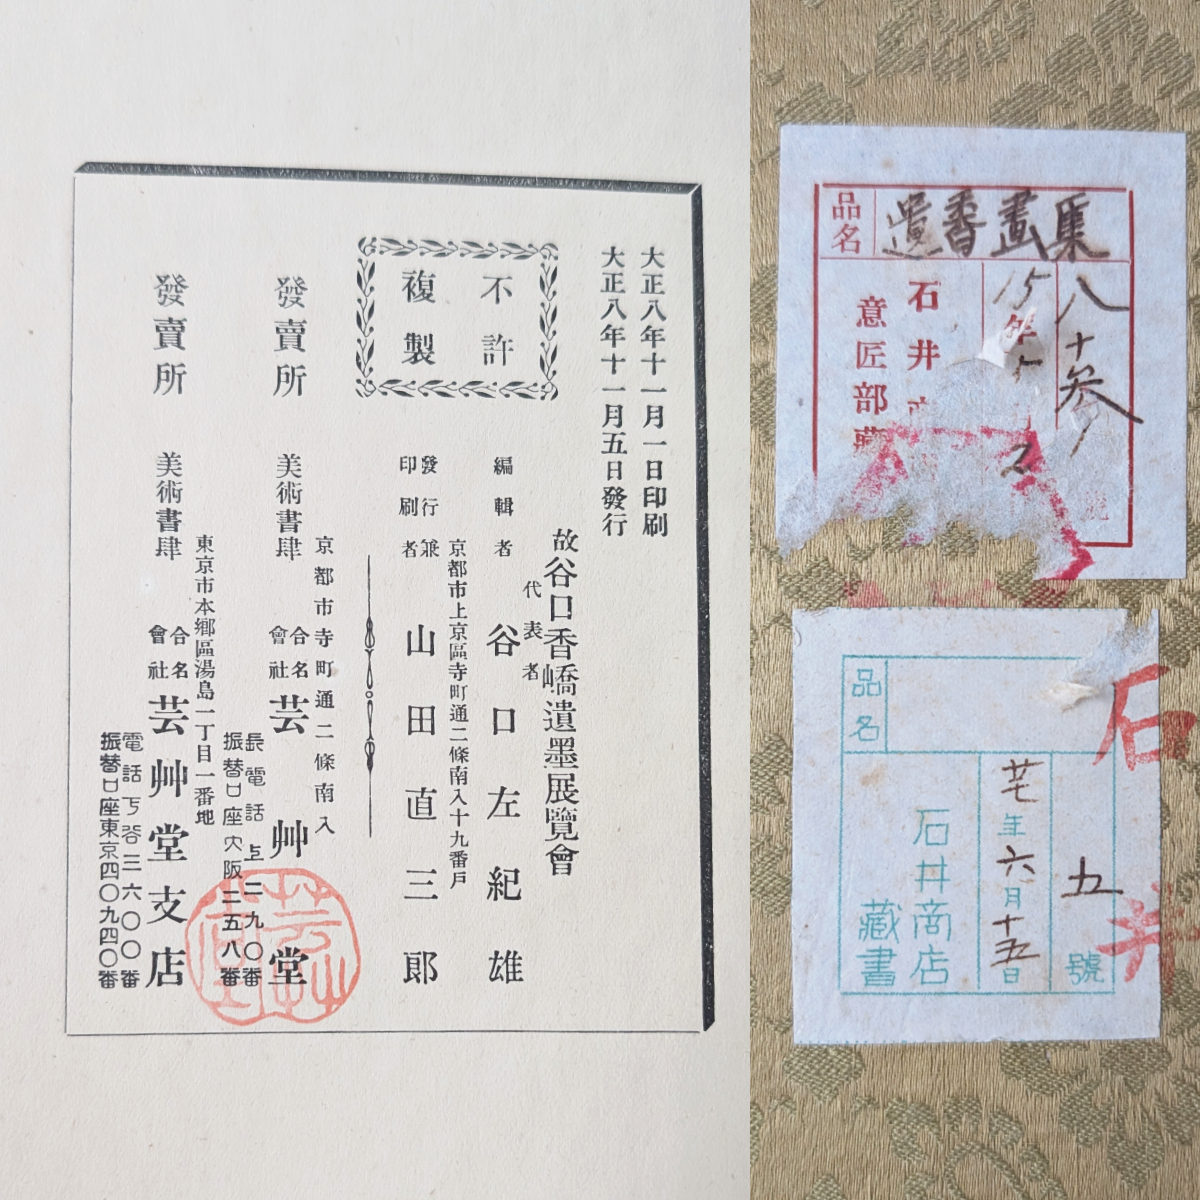 大正八年十一月一日印刷
大正八年十一月五日發行
不許
複製
故谷口香嶠遺墨展覽會
編輯者
代表者
谷口左紀雄
京都市上京區寺町通二條南入十九番戶
發行兼
印刷者
山田直三郎
京都市寺町通二條南入
發賣所
美術書肆
合名
會社
芸艸堂
長電話上二九〇番
振替口座大阪二五八番
東京市本鄉區湯島一丁目一番地
發賣所
美術書肆
合名
會社
芸艸堂支店
電話下谷三六〇〇番
振替口座東京四〇九四〇番
芸艸堂
品名
遺香畫集
八十參
號
15年
2
石井
意匠部藏
品名
五號
年六月十五日
石井商店
藏書
石井